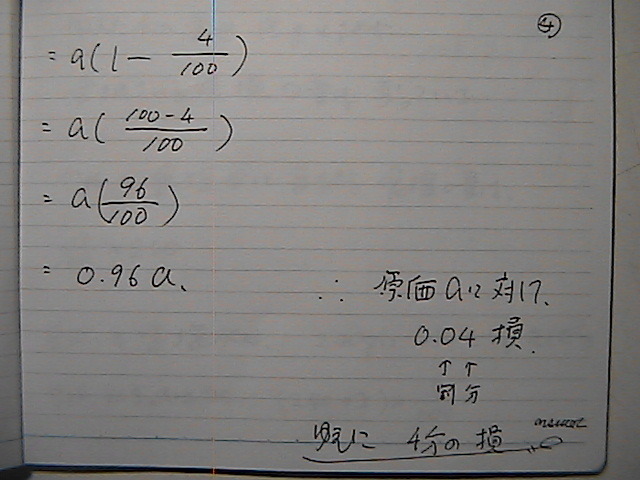 ④
= a(1 - 4/100)
= a(100-4/100)
= a(96/100)
= 0.96a、
∴ 原価aに対し、
0.04 損.
↑ ↑
割 分
ゆえに 4分の損 answer